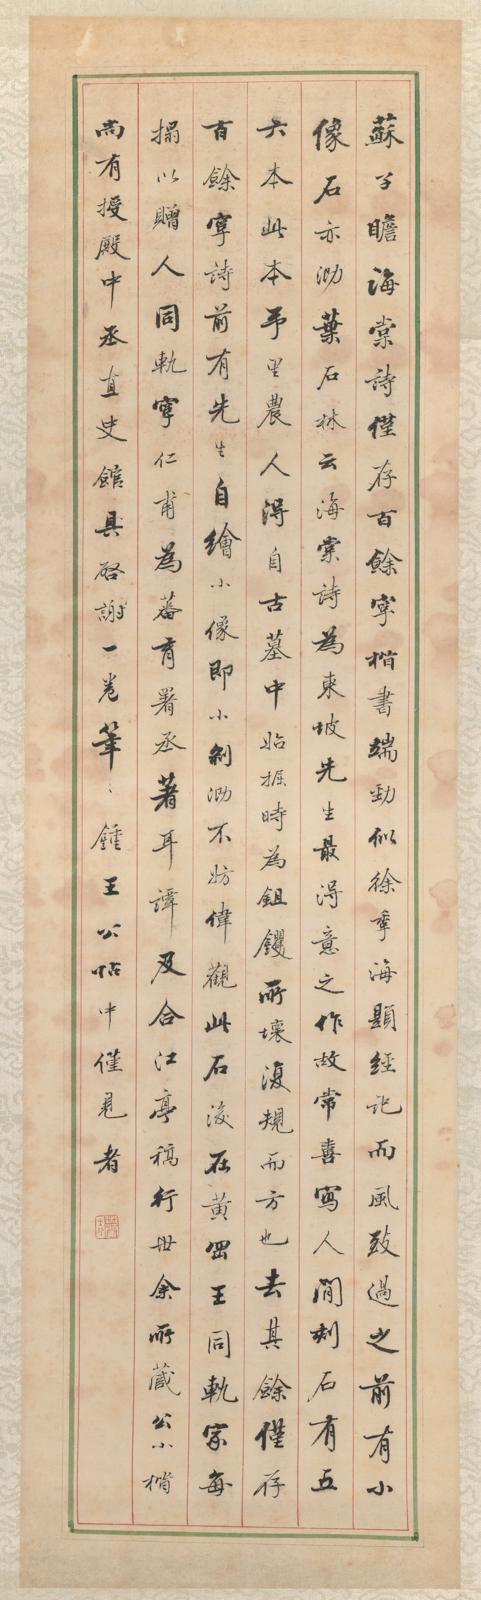 蘇子瞻海棠詩僅存百餘字楷書端勁似徐季海題經記而風致過之前有小
像石亦泐葉石林云海棠詩為東坡先生最得意之作故常喜寫人間刻石有五
六本此本弔里農人得自古墓中始掘時為鉏钁所壞復規而方也去其餘僅存
百餘字詩前有先生自繪小像即小剝泐不妨偉觀此石後在黃岡王同軌家每
搨以贈人同軌字仁甫為蕃育署丞著耳譚及合江亭稿行世余所藏公小楷
尚有授殿中丞直史館具啓謝一卷筆〻鍾王公帖中僅見者